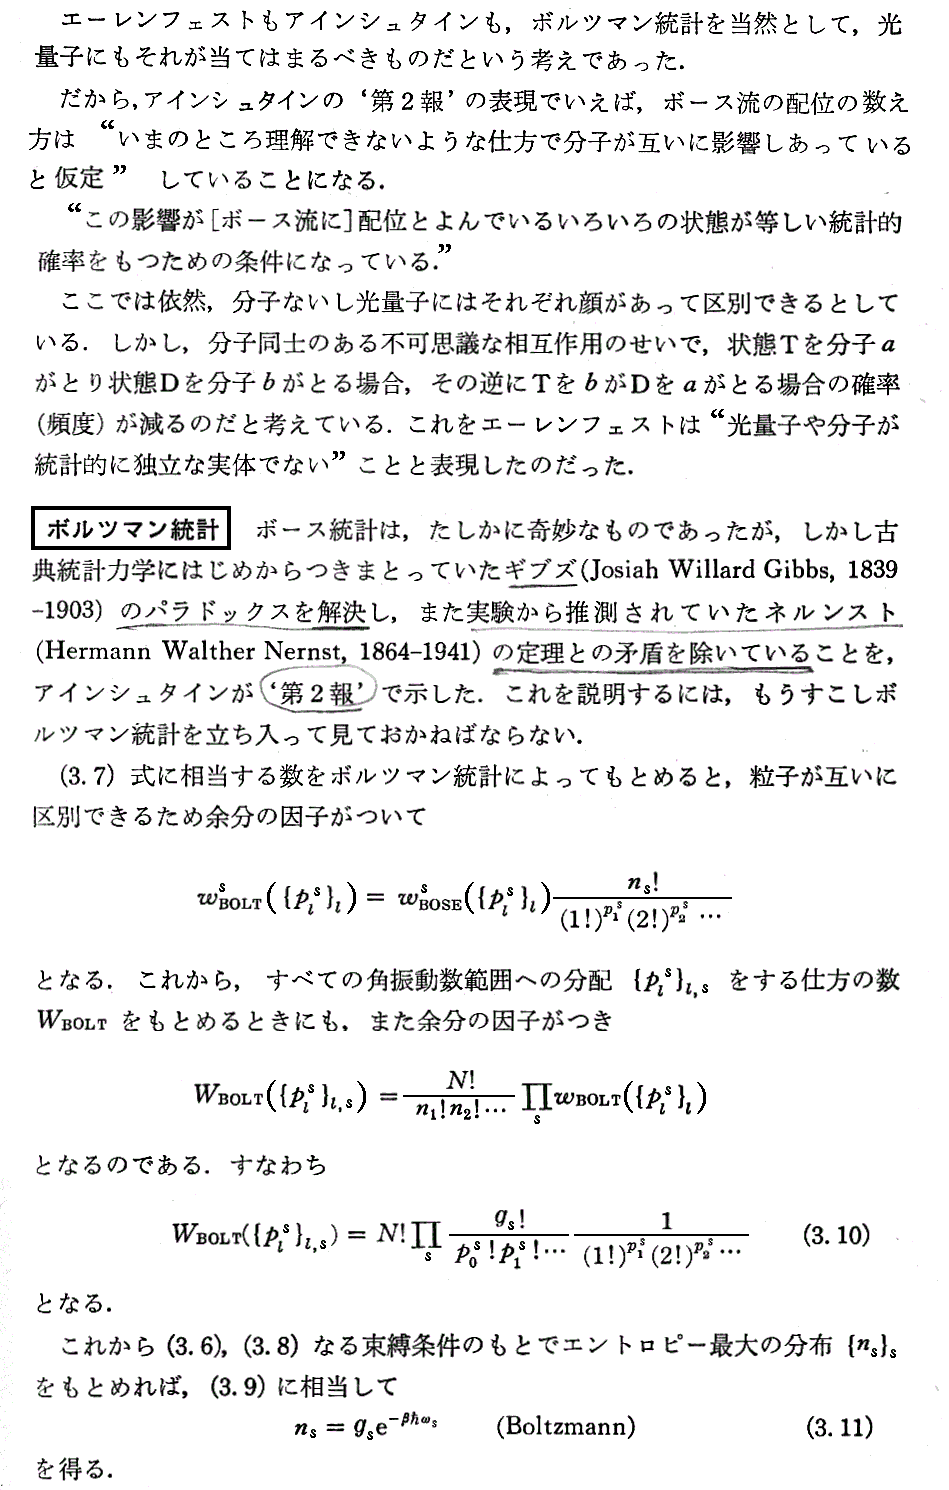 エーレンフェストもアインシュタインも，ボルツマン統計を当然として，光
量子にもそれが当てはまるべきものだという考えであった．
だから，アインシュタインの‘第2報’の表現でいえば，ボース流の配位の数え
方は “いまのところ理解できないような仕方で分子が互いに影響しあっている
と仮定” していることになる．
“この影響が［ボース流に］配位とよんでいるいろいろの状態が等しい統計的
確率をもつための条件になっている．”
ここでは依然，分子ないし光量子にはそれぞれ顔があって区別できるとして
いる．しかし，分子同士のある不可思議な相互作用のせいで，状態Tを分子a
がとり状態Dを分子bがとる場合，その逆にTをbがDをaがとる場合の確率
(頻度)が減るのだと考えている．これをエーレンフェストは“光量子や分子が
統計的に独立な実体でない”ことと表現したのだった．
ボルツマン統計 ボース統計は，たしかに奇妙なものであったが，しかし古
典統計力学にはじめからつきまとっていたギブズ(Josiah Willard Gibbs, 1839
-1903) のパラドックスを解決し，また実験から推測されていたネルンスト
(Hermann Walther Nernst, 1864-1941) の定理との矛盾を除いていることを，
アインシュタインが‘第2報’で示した．これを説明するには，もうすこしボ
ルツマン統計を立ち入って見ておかねばならない．
(3.7) 式に相当する数をボルツマン統計によってもとめると，粒子が互いに
区別できるため余分の因子がついて
w^s_BOLT({p_l^s}_l) = w^s_BOSE({p_l^s}_l) n_s! / (1!)^{p_1^s}(2!)^{p_2^s} …
となる．これから，すべての角振動数範囲への分配 {p_l^s}_{l,s} をする仕方の数
W_BOLT をもとめるときにも，また余分の因子がつき
W_BOLT({p_l^s}_{l,s}) = N! / n_1! n_2! … ∏_s w_BOLT({p_l^s}_l)
となるのである．すなわち
W_BOLT({p_l^s}_{l,s}) = N! ∏_s g_s! / p_0^s! p_1^s! … 1 / (1!)^{p_1^s}(2!)^{p_2^s} … (3.10)
となる．
これから (3.6), (3.8) なる束縛条件のもとでエントロピー最大の分布 {n_s}_s
をもとめれば，(3.9) に相当して
n_s = g_s e^{-βℏω_s} (Boltzmann) (3.11)
を得る．